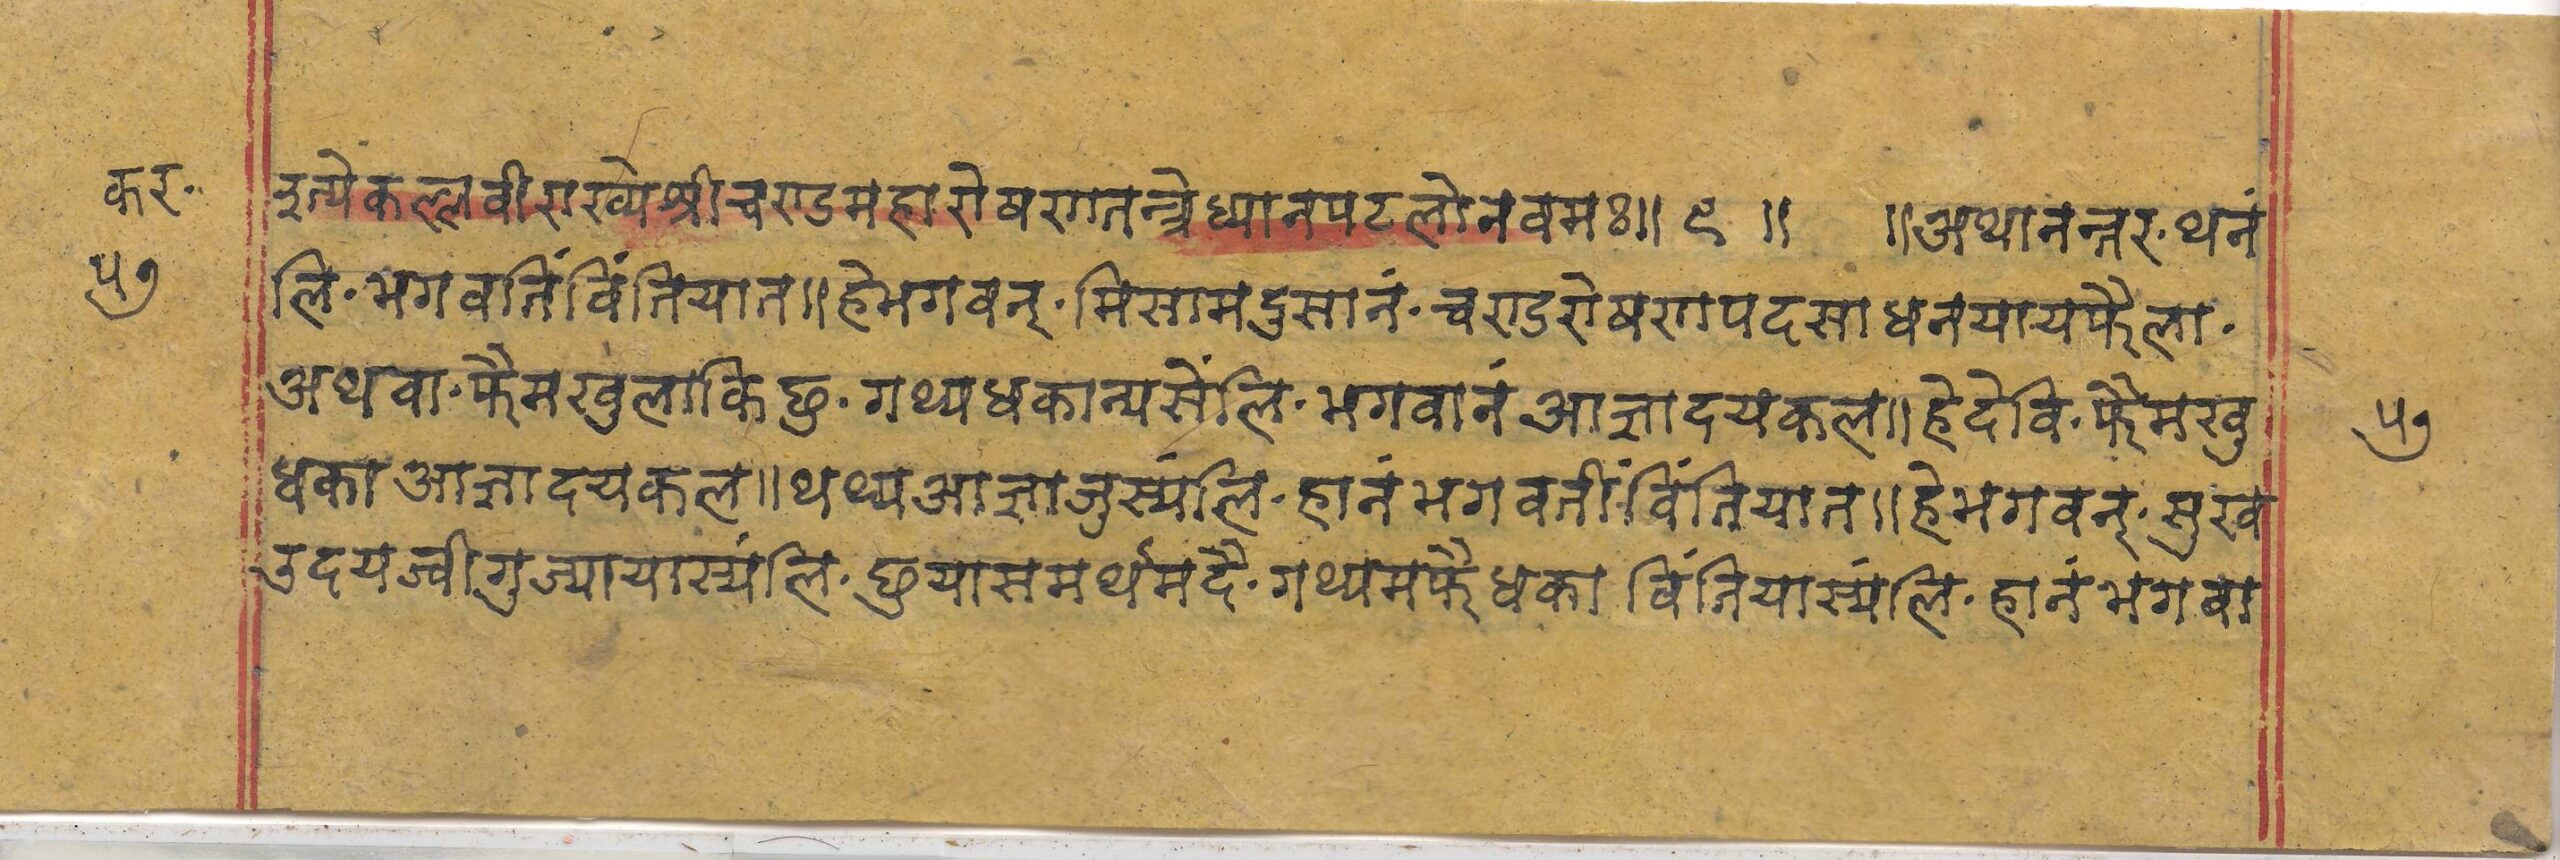 कर·
५७
इत्येकल्लवीराख्येश्रीचण्डमहारोषणतन्त्रेध्यानपटलोनवमः॥ ९ ॥ ॥अथानन्तर·थनं
लि·भगवतिंविंतियात॥हेभगवन्·मिसामदुसानं·चण्डरोषणपदसाधनयायफैला·
अथवा·फैमखुलाकिछु·गथ्यधकान्यसेंलि·भगवानं आज्ञादयकल॥हेदेवि·फैमखु
५७
धका आज्ञादयकल॥थथ्यआज्ञाजुस्यंलि·हानंभगवतीं·विंतियात॥हेभगवन्·सुख
उदयज्वीगुज्यायास्यंलि·छुयासमर्थमदै·गथ्यमफैधका विंतियास्यंलि·हानंभगवा